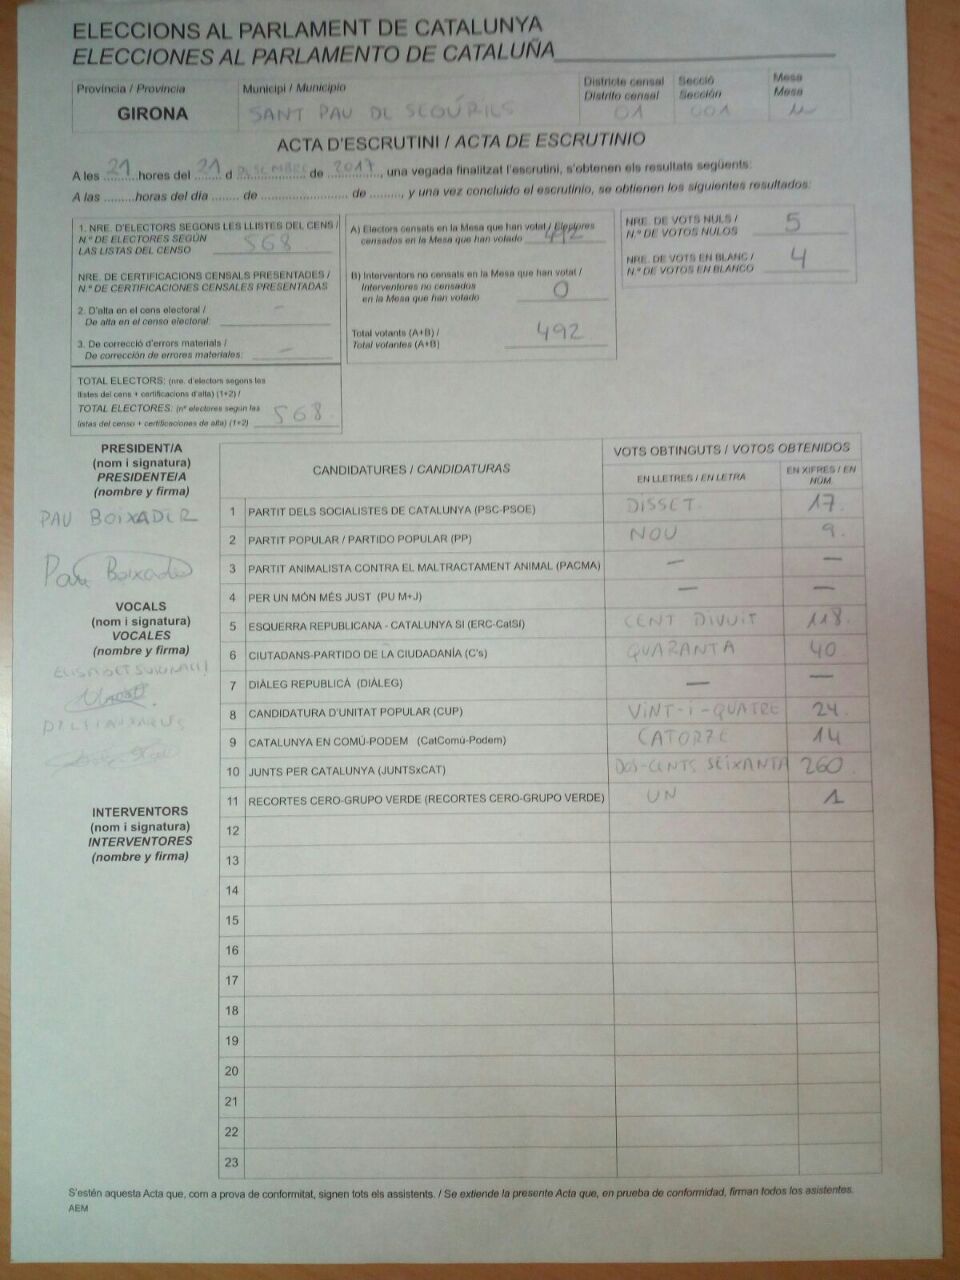 ELECCIONS AL PARLAMENT DE CATALUNYA
ELECCIONES AL PARLAMENTO DE CATALUÑA
Província / Provincia
GIRONA
Municipi / Municipio
SANT PAU DE SEGÚRIES
Districte censal
Distrito censal
01
Secció
Sección
001
Mesa
Mesa
U
ACTA D'ESCRUTINI / ACTA DE ESCRUTINIO
A les 21 hores del 21 d DESEMBRE de 2017, una vegada finalitzat l'escrutini, s'obtenen els resultats següents:
A las .........horas del día ........ de ........................... de ........., y una vez concluido el escrutinio, se obtienen los siguientes resultados:
1. NRE. D'ELECTORS SEGONS LES LLISTES DEL CENS /
N.º DE ELECTORES SEGÚN
LAS LISTAS DEL CENSO 568
NRE. DE CERTIFICACIONS CENSALS PRESENTADES /
N.º DE CERTIFICACIONES CENSALES PRESENTADAS
2. D'alta en el cens electoral /
De alta en el censo electoral: -
3. De correcció d'errors materials /
De corrección de errores materiales: -
TOTAL ELECTORS: (nre. d'electors segons les
llistes del cens + certificacions d'alta) (1+2) /
TOTAL ELECTORES: (nº electores según las
listas del censo + certificaciones de alta) (1+2) 568.
A) Electors censats en la Mesa que han votat / Electores
censados en la Mesa que han votado 492
B) Interventors no censats en la Mesa que han votat /
Interventores no censados
en la Mesa que han votado 0
Total votants (A+B) /
Total votantes (A+B) 492
NRE. DE VOTS NULS /
N.º DE VOTOS NULOS 5
NRE. DE VOTS EN BLANC /
N.º DE VOTOS EN BLANCO 4
PRESIDENT/A
(nom i signatura)
PRESIDENTE/A
(nombre y firma)
PAU BOIXADER
Pau Boixader
VOCALS
(nom i signatura)
VOCALES
(nombre y firma)
INTERVENTORS
(nom i signatura)
INTERVENTORES
(nombre y firma)
CANDIDATURES / CANDIDATURAS
VOTS OBTINGUTS / VOTOS OBTENIDOS
EN LLETRES / EN LETRA
EN XIFRES / EN
NÚM.
1 PARTIT DELS SOCIALISTES DE CATALUNYA (PSC-PSOE) DISSET. 17.
2 PARTIT POPULAR / PARTIDO POPULAR (PP) NOU 9.
3 PARTIT ANIMALISTA CONTRA EL MALTRACTAMENT ANIMAL (PACMA) — —
4 PER UN MÓN MÉS JUST (PU M+J) — —
5 ESQUERRA REPUBLICANA - CATALUNYA SI (ERC-CatSÍ) CENT DIVUIT 118.
6 CIUTADANS-PARTIDO DE LA CIUDADANÍA (C's) QUARANTA 40
7 DIÀLEG REPUBLICÀ (DIÀLEG) — —
8 CANDIDATURA D'UNITAT POPULAR (CUP) VINT-I-QUATRE 24.
9 CATALUNYA EN COMÚ-PODEM (CatComú-Podem) CATORZE 14
10 JUNTS PER CATALUNYA (JUNTSxCAT) DOS-CENTS SEIXANTA 260.
11 RECORTES CERO-GRUPO VERDE (RECORTES CERO-GRUPO VERDE) UN 1
12
13
14
15
16
17
18
19
20
21
22
23
S'estén aquesta Acta que, com a prova de conformitat, signen tots els assistents. / Se extiende la presente Acta que, en prueba de conformidad, firman todos los asistentes.
AEM